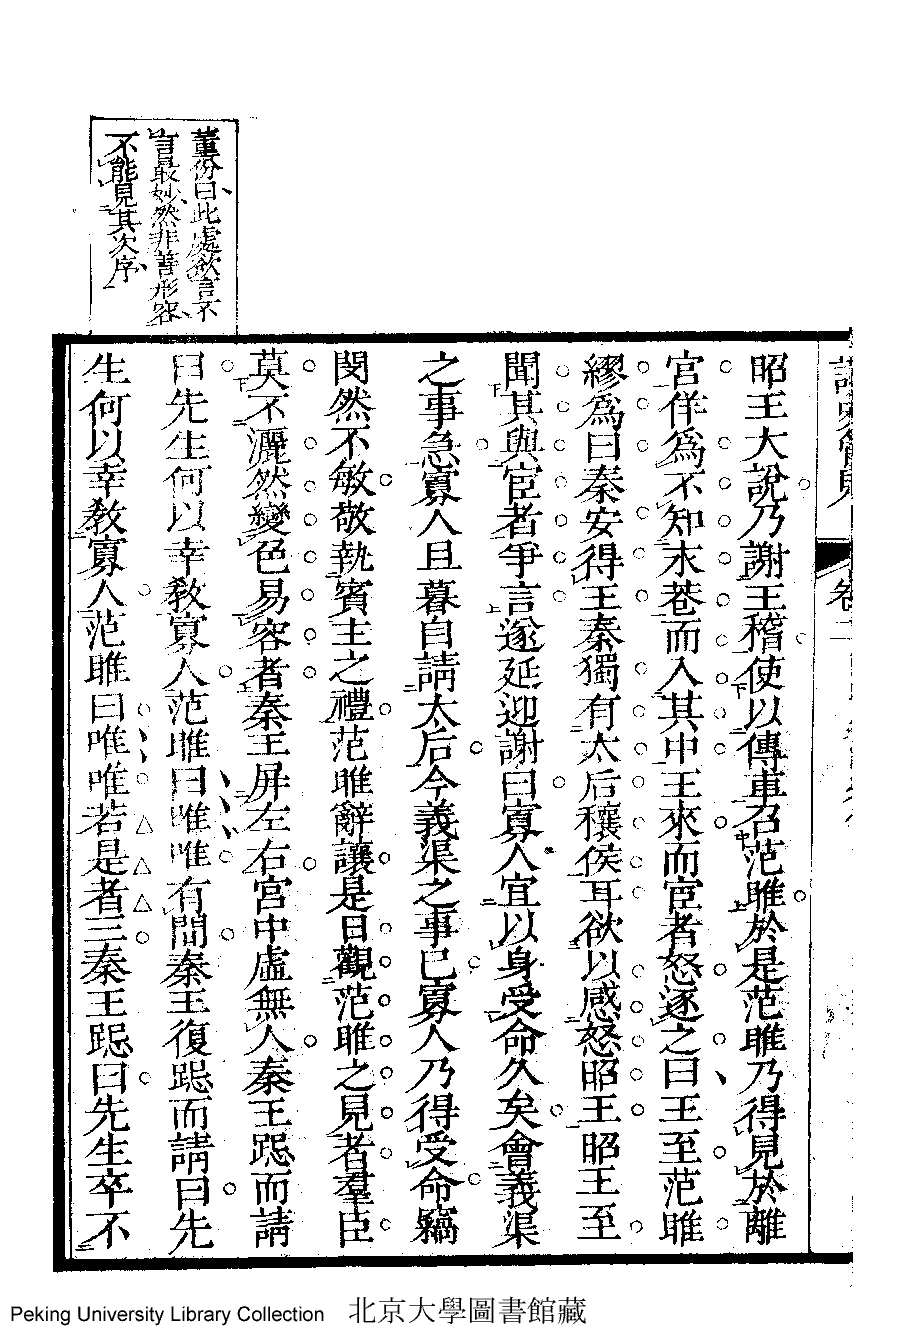 董份曰此處欲言不
言最妙然非善形容
不能見其次序
昭王大說乃謝王稽使以傳車召范雎於是范雎乃得見於離
宮佯爲不知永巷而入其中王來而宦者怒逐之曰王至范雎
繆爲曰秦安得王秦獨有太后穰侯耳欲以感怒昭王昭王至
聞其與宦者爭言遂延迎謝曰寡人宜以身受命久矣會義渠
之事急寡人旦暮自請太后今義渠之事已寡人乃得受命竊
閔然不敏敬執賓主之禮范雎辭讓是日觀范雎之見者羣臣
莫不灑然變色易容者秦王屏左右宮中虛無人秦王跽而請
曰先生何以幸敎寡人范雎曰唯唯有間秦王復跽而請曰先
生何以幸敎寡人范雎曰唯唯若是者三秦王跽曰先生卒不
Peking University Library Collection 北京大學圖書館藏